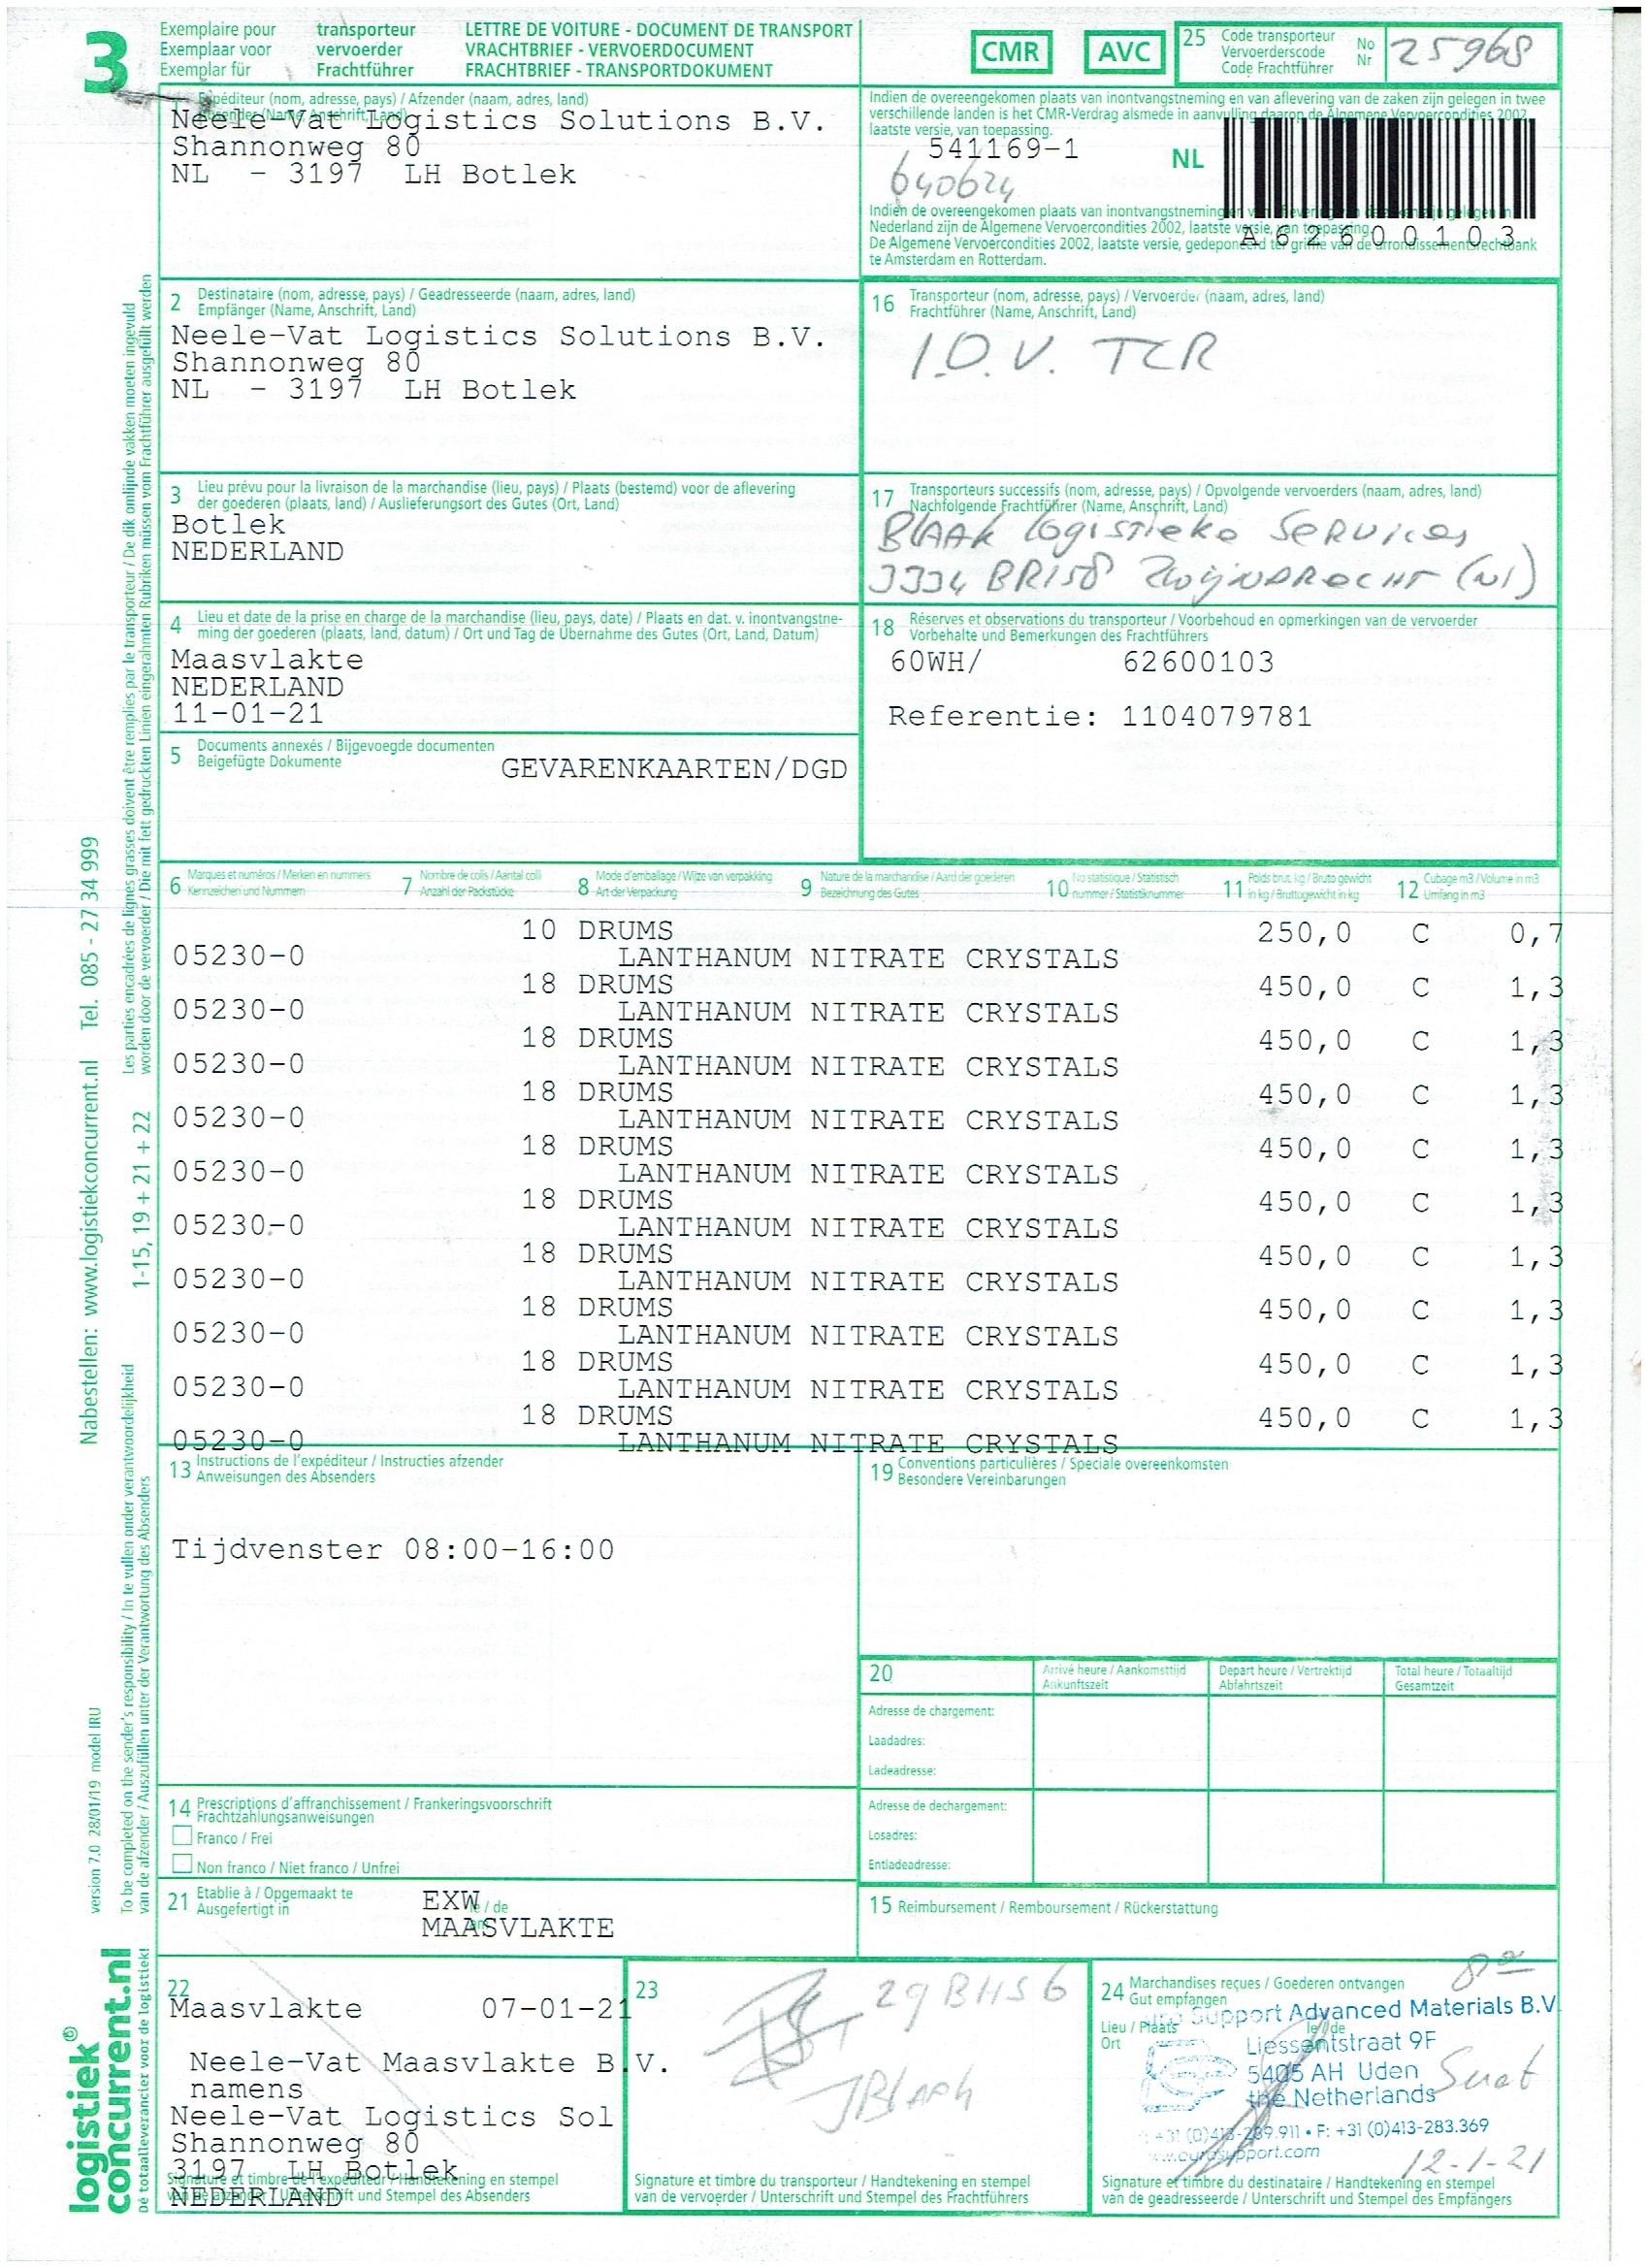 3
Exemplaire pour transporteur
Exemplaar voor vervoerder
Exemplar für Frachtführer
LETTRE DE VOITURE - DOCUMENT DE TRANSPORT
VRACHTBRIEF - VERVOERDOCUMENT
FRACHTBRIEF - TRANSPORTDOKUMENT
CMR
AVC
25 Code transporteur
Vervoerderscode
Code Frachtführer
No
Nr
25968
Expéditeur (nom, adresse, pays) / Afzender (naam, adres, land)
Absender (Name, Anschrift, Land)
Neele-Vat Logistics Solutions B.V.
Shannonweg 80
NL - 3197 LH Botlek
Indien de overeengekomen plaats van inontvangstneming en van aflevering van de zaken zijn gelegen in twee
verschillende landen is het CMR-Verdrag alsmede in aanvulling daarop de Algemene Vervoercondities 2002,
laatste versie, van toepassing.
541169-1
640624
NL
Indien de overeengekomen plaats van inontvangstneming en van aflevering van de zaken zijn gelegen in
Nederland zijn de Algemene Vervoercondities 2002, laatste versie, van toepassing.
A62600103
De Algemene Vervoercondities 2002, laatste versie, gedeponeerd ter griffie van de arrondissementsrechtbank
te Amsterdam en Rotterdam.
2 Destinataire (nom, adresse, pays) / Geadresseerde (naam, adres, land)
Empfänger (Name, Anschrift, Land)
Neele-Vat Logistics Solutions B.V.
Shannonweg 80
NL - 3197 LH Botlek
16 Transporteur (nom, adresse, pays) / Vervoerder (naam, adres, land)
Frachtführer (Name, Anschrift, Land)
I.O.V. TCR
3 Lieu prévu pour la livraison de la marchandise (lieu, pays) / Plaats (bestemd) voor de aflevering
der goederen (plaats, land) / Auslieferungsort des Gutes (Ort, Land)
Botlek
NEDERLAND
17 Transporteurs successifs (nom, adresse, pays) / Opvolgende vervoerders (naam, adres, land)
Nachfolgende Frachtführer (Name, Anschrift, Land)
BLAAK Logistieke Services
3334 BR158 Zwijndrecht (Nl)
4 Lieu et date de la prise en charge de la marchandise (lieu, pays, date) / Plaats en dat. v. inontvangstne-
ming der goederen (plaats, land, datum) / Ort und Tag de Übernahme des Gutes (Ort, Land, Datum)
Maasvlakte
NEDERLAND
11-01-21
18 Réserves et observations du transporteur / Voorbehoud en opmerkingen van de vervoerder
Vorbehalte und Bemerkungen des Frachtführers
60WH/ 62600103
Referentie: 1104079781
5 Documents annexés / Bijgevoegde documenten
Beigefügte Dokumente
GEVARENKAARTEN/DGD
6 Marques et numéros / Merken en nummers
Kennzeichen und Nummern
7 Nombre de colis / Aantal colli
Anzahl der Packstücke
8 Mode d'emballage / Wijze van verpakking
Art der Verpackung
9 Nature de la marchandise / Aard der goederen
Bezeichnung des Gutes
10 No statistique / Statistisch
nummer / Statistiknummer
11 Poids brut, kg / Bruto gewicht
in kg / Bruttogewicht in kg
12 Cubage m3 / Volume in m3
Umfang in m3
10 DRUMS 250,0 C 0,7
05230-0 LANTHANUM NITRATE CRYSTALS
18 DRUMS 450,0 C 1,3
05230-0 LANTHANUM NITRATE CRYSTALS
18 DRUMS 450,0 C 1,3
05230-0 LANTHANUM NITRATE CRYSTALS
18 DRUMS 450,0 C 1,3
05230-0 LANTHANUM NITRATE CRYSTALS
18 DRUMS 450,0 C 1,3
05230-0 LANTHANUM NITRATE CRYSTALS
18 DRUMS 450,0 C 1,3
05230-0 LANTHANUM NITRATE CRYSTALS
18 DRUMS 450,0 C 1,3
05230-0 LANTHANUM NITRATE CRYSTALS
18 DRUMS 450,0 C 1,3
05230-0 LANTHANUM NITRATE CRYSTALS
18 DRUMS 450,0 C 1,3
05230-0 LANTHANUM NITRATE CRYSTALS
18 DRUMS 450,0 C 1,3
05230-0 LANTHANUM NITRATE CRYSTALS
13 Instructions de l'expéditeur / Instructies afzender
Anweisungen des Absenders
Tijdvenster 08:00-16:00
19 Conventions particulières / Speciale overeenkomsten
Besondere Vereinbarungen
20
Arrivé heure / Aankomsttijd
Ankunftszeit
Depart heure / Vertrektijd
Abfahrtszeit
Total heure / Totaaltijd
Gesamtzeit
Adresse de chargement:
Laadadres:
Ladeadresse:
Adresse de dechargement:
Losadres:
Entladeadresse:
14 Prescriptions d'affranchissement / Frankeringsvoorschrift
Frachtzahlungsanweisungen
Franco / Frei
Non franco / Niet franco / Unfrei
21 Etablie à / Opgemaakt te
Ausgefertigt in
EXW
le / de
am
MAASVLAKTE
15 Reimbursement / Remboursement / Rückerstattung
22
Maasvlakte 07-01-21
Neele-Vat Maasvlakte B.V.
namens
Neele-Vat Logistics Sol
Shannonweg 80
3197 LH Botlek
NEDERLAND
Signature et timbre de l'expéditeur / Handtekening en stempel
van de afzender / Unterschrift und Stempel des Absenders
23
29BHS6
JBlaak
Signature et timbre du transporteur / Handtekening en stempel
van de vervoerder / Unterschrift und Stempel des Frachtführers
24 Marchandises reçues / Goederen ontvangen
Gut empfangen
Lieu / Plaats
Ort
le / de
Support Advanced Materials B.V.
Liessentstraat 9F
5405 AH Uden
the Netherlands
+31 (0)413-289.911 • F: +31 (0)413-283.369
www.eurosupport.com
12-1-21
Signature et timbre du destinataire / Handtekening en stempel
van de geadresseerde / Unterschrift und Stempel des Empfängers
Nabestellen: www.logistiekconcurrent.nl Tel. 085 - 27 34 999
Les parties encadrées de lignes grasses doivent être remplies par le transporteur / De dik omlijnde vakken moeten ingevuld
worden door de vervoerder / Die mit fett gedruckten Linien eingerahmten Rubriken müssen vom Frachtführer ausgefüllt werden
1-15, 19 + 21 + 22
To be completed on the sender's responsibility / In te vullen onder verantwoordelijkheid
van de afzender / Auszufüllen unter der Verantwortung des Absenders
version 7.0 28/01/19 model IRU
logistiek
concurrent.nl
Dé totaalleverancier voor de logistiek!